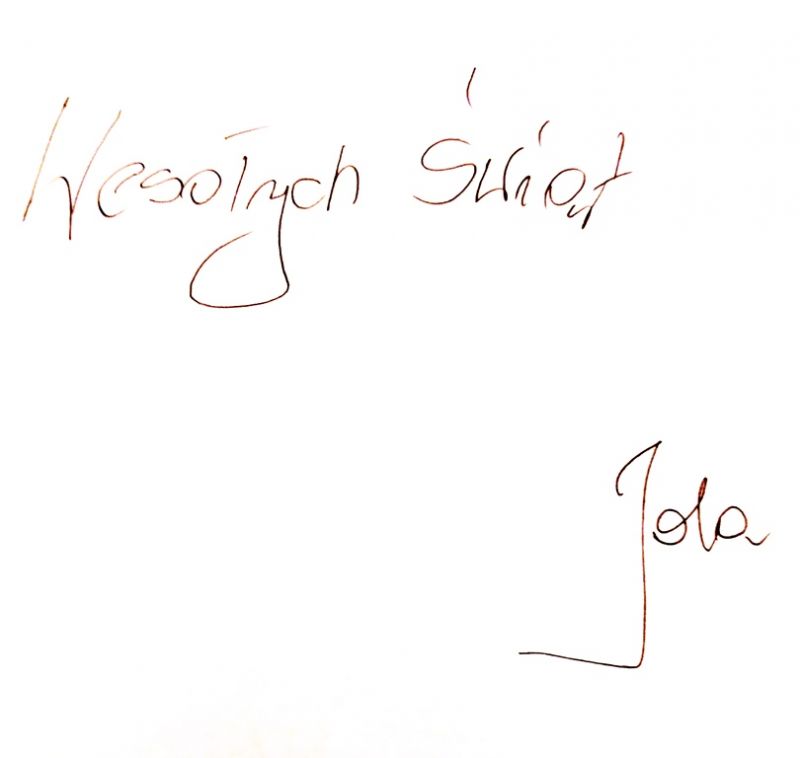 Wesołych Świąt
Jola